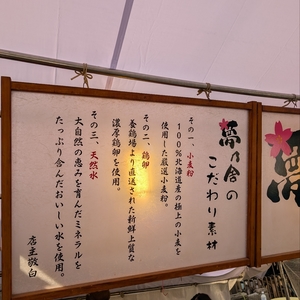 夢乃舎の
こだわり素材
その一、小麦粉
100%北海道産の極上の小麦を
使用した厳選小麦粉。
その二、鶏卵
養鶏場より直送された新鮮上質な
濃厚鶏卵を使用。
その三、天然水
大自然の恵みを育んだミネラルを
たっぷり含んだおいしい水を使用。
店主敬白